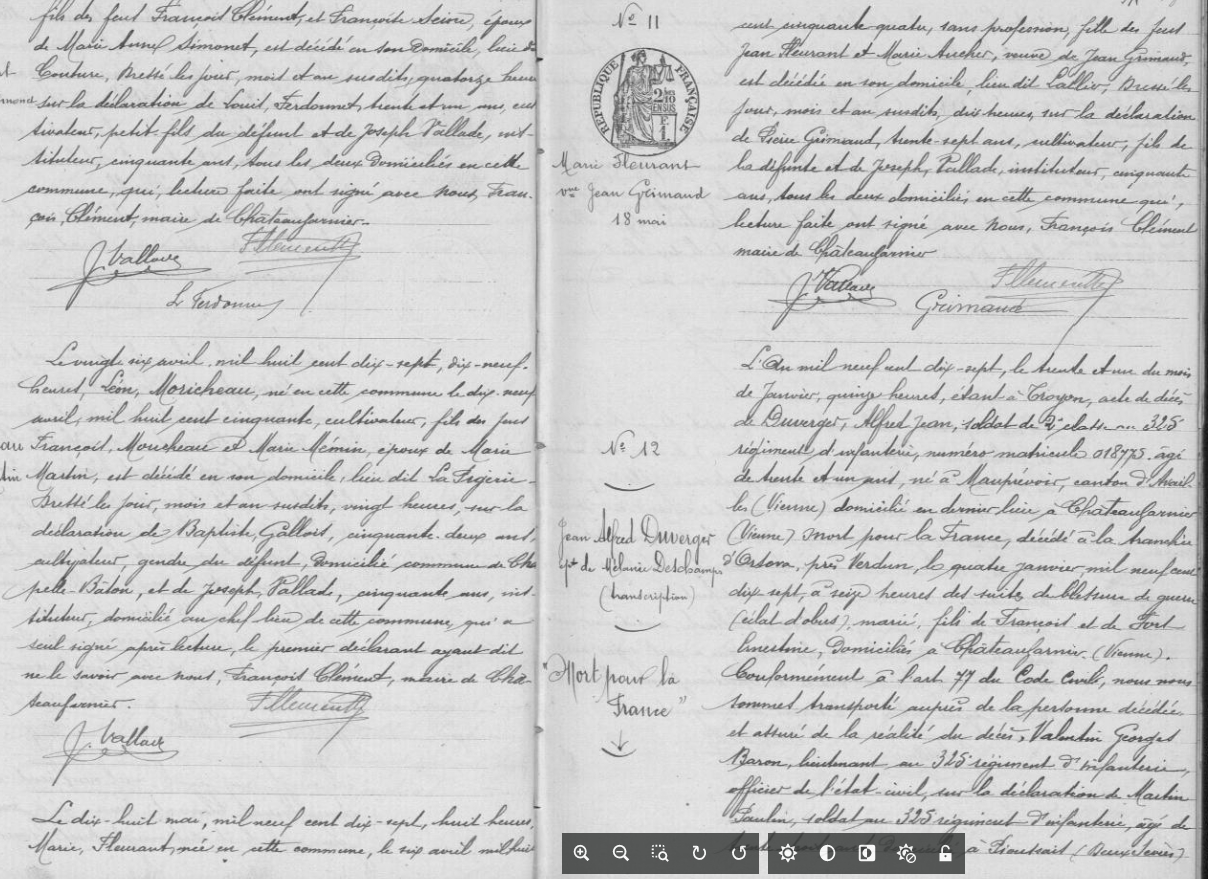 fils des feus François Clément, et Françoise Seine, époux
de Marie Anne Simonet, est décédé en son domicile, lieu dit
Couture, Bressé les jour, mois et an susdits, quatorze heures
sur la déclaration de Louis, Ferdonnet, trente et un ans, cul
tivateur, petit-fils du défunt et de Joseph Vallade, ins-
tituteur, cinquante ans, tous les deux domiciliés en cette
commune, qui, lecture faite ont signé avec nous, Fran-
çois, Clément, maire de Châteaugarnier.
J. Vallade
F. Clément
L. Ferdonnet
Le vingt six avril, mil huit cent dix-sept, dix-neuf
heures, Léon, Moricheau, né en cette commune le dix-neuf
avril, mil huit cent cinquante, cultivateur, fils des feus
François, Moricheau et Marie Mémin, époux de Marie
Martin, est décédé en son domicile, lieu dit La Tigerie
Bressé le jour, mois et an susdits, vingt heures, sur la
déclaration de Baptiste, Gallois, cinquante-deux ans,
cultivateur, gendre du défunt, domicilié commune de Cha
pelle-Bâton, et de Joseph, Vallade, cinquante ans, ins-
tituteur, domicilié au chef-lieu de cette commune, qui a
seul signé après lecture, le premier déclarant ayant dit
ne le savoir avec nous, François Clément, maire de Châ-
teaugarnier.
F. Clément
J. Vallade
Le dix-huit mai, mil neuf cent dix-sept, huit heures,
Marie, Fleurant, née en cette commune, le six avril mil huit
N° 11
RÉPUBLIQUE FRANÇAISE
2 10
Marie Fleurant
vve Jean Grimaud
18 mai
cent cinquante quatre, sans profession, fille des feus
Jean Fleurant et Marie Ancher, veuve de Jean Grimaud,
est décédée en son domicile, lieu dit Lallier, Bressé les
jour, mois et an susdits, dix heures, sur la déclaration
de Pierre Grimaud, trente-sept ans, cultivateur, fils de
la défunte et de Joseph, Vallade, instituteur, cinquante
ans, tous les deux domiciliés, en cette commune qui,
lecture faite ont signé avec nous, François Clément
maire de Châteaugarnier
J. Vallade
F. Clément
Grimaud
N° 12
Jean Alfred Duverger
ép. de Mélanie Deschamps
(transcription)
"Mort pour la
France"
L'An mil neuf cent dix-sept, le trente et un du mois
de Janvier, quinze heures, étant à Troyon, acte de décès
de Duverger, Alfred Jean, soldat de 2e classe au 325
régiment d'infanterie, numéro matricule 018775, âgé
de trente et un ans, né à Mauprévoir, canton d'Avail-
les (Vienne) domicilié en dernier lieu à Châteaugarnier
(Vienne) Mort pour la France, décédé à la tranchée
d'Orsova, près Verdun, le quatre janvier mil neuf cent
dix-sept, à seize heures des suites de blessure de guerre
(éclat d'obus), marié, fils de François et de Fort
Ernestine, domiciliés à Châteaugarnier. (Vienne).
Conformément à l'art 77 du Code Civil, nous nous
sommes transporté auprès de la personne décédée
et assuré de la réalité du décès, Valentin Georges
Baron, lieutenant au 325e régiment d'infanterie,
officier de l'état-civil, sur la déclaration de Martin
Paulin, soldat au 325 régiment d'infanterie, âgé de
à Pioussais (Deux Sèvres)